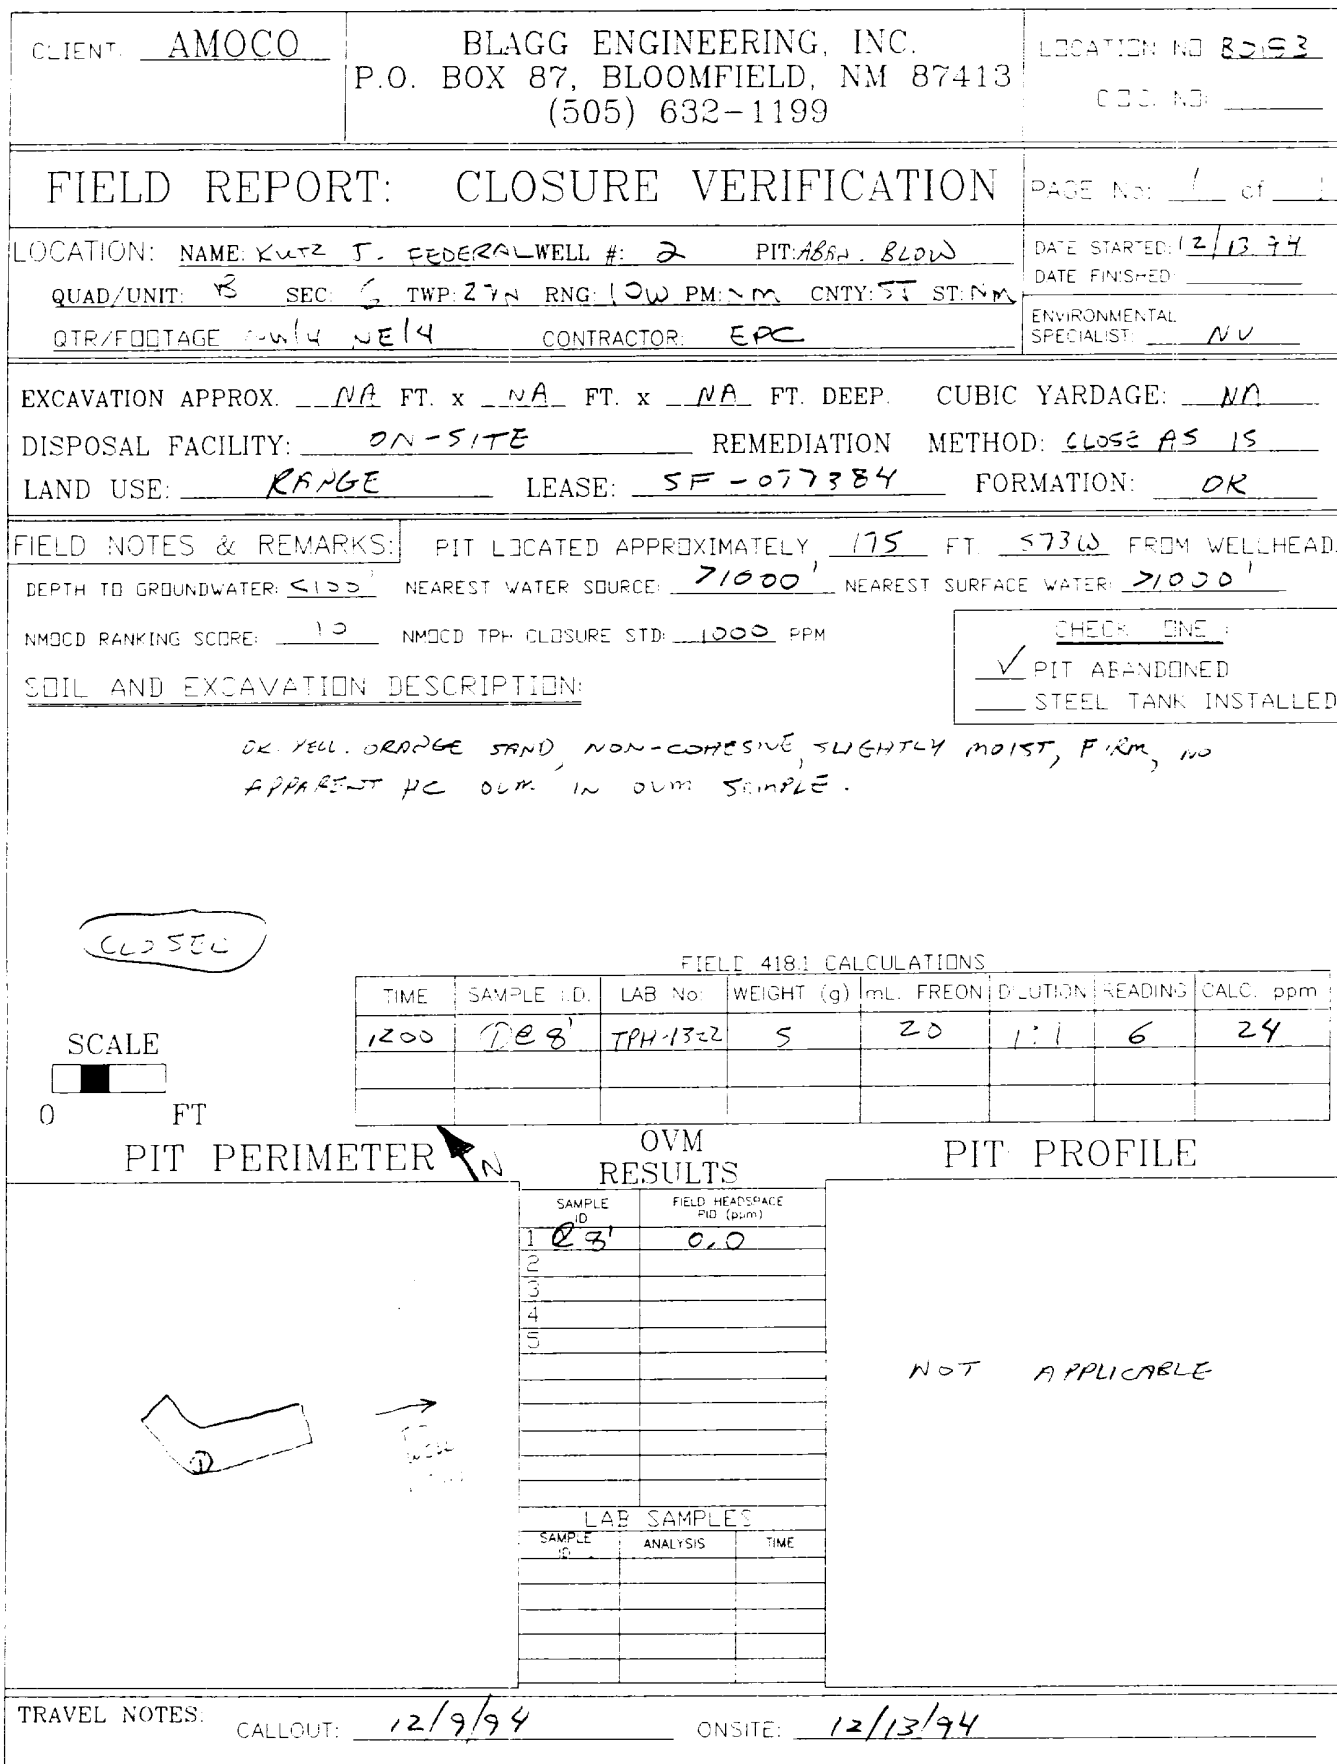 CLIENT: AMOCO
BLAGG ENGINEERING, INC.
P.O. BOX 87, BLOOMFIELD, NM 87413
(505) 632-1199
LOCATION NO:
C.O.C. NO:
FIELD REPORT: CLOSURE VERIFICATION
PAGE No: 1 of 1
LOCATION: NAME: KUTZ J. FEDERAL WELL #: 2 PIT: ABAN. BLOW
QUAD/UNIT: B SEC: 6 TWP: 27N RNG: 10W PM: NM CNTY: SJ ST: NM
QTR/FOOTAGE NW/4 NE/4 CONTRACTOR: EPC
DATE STARTED: 12/13/94
DATE FINISHED:
ENVIRONMENTAL
SPECIALIST: NV
EXCAVATION APPROX. NA FT. x NA FT. x NA FT. DEEP. CUBIC YARDAGE: NA
DISPOSAL FACILITY: ON-SITE REMEDIATION METHOD: CLOSE AS IS
LAND USE: RANGE LEASE: SF-077384 FORMATION: DK
FIELD NOTES & REMARKS: PIT LOCATED APPROXIMATELY 175 FT. S73W FROM WELLHEAD.
DEPTH TO GROUNDWATER: <100' NEAREST WATER SOURCE: >1000' NEAREST SURFACE WATER: >1000'
NMOCD RANKING SCORE: 10 NMOCD TPH CLOSURE STD: 1000 PPM
CHECK ONE :
✓ PIT ABANDONED
STEEL TANK INSTALLED
SOIL AND EXCAVATION DESCRIPTION:
DK. YELL. ORANGE SAND, NON-COHESIVE, SLIGHTLY MOIST, FIRM, NO
APPARENT HC IN OVM SAMPLE.
CLOSED
FIELD 418.1 CALCULATIONS
TIME SAMPLE I.D. LAB No: WEIGHT (g) mL. FREON DILUTION READING CALC. ppm
1200 ① @ 8' 5 20 1:1 6 24
SCALE
0 FT
PIT PERIMETER N
OVM
RESULTS
PIT PROFILE
SAMPLE
ID
FIELD HEADSPACE
PID (ppm)
1 @ 8' 0.0
2
3
4
5
①
TO
WELL
NOT APPLICABLE
LAB SAMPLES
SAMPLE
ID
ANALYSIS
TIME
TRAVEL NOTES: CALLOUT: 12/9/94 ONSITE: 12/13/94